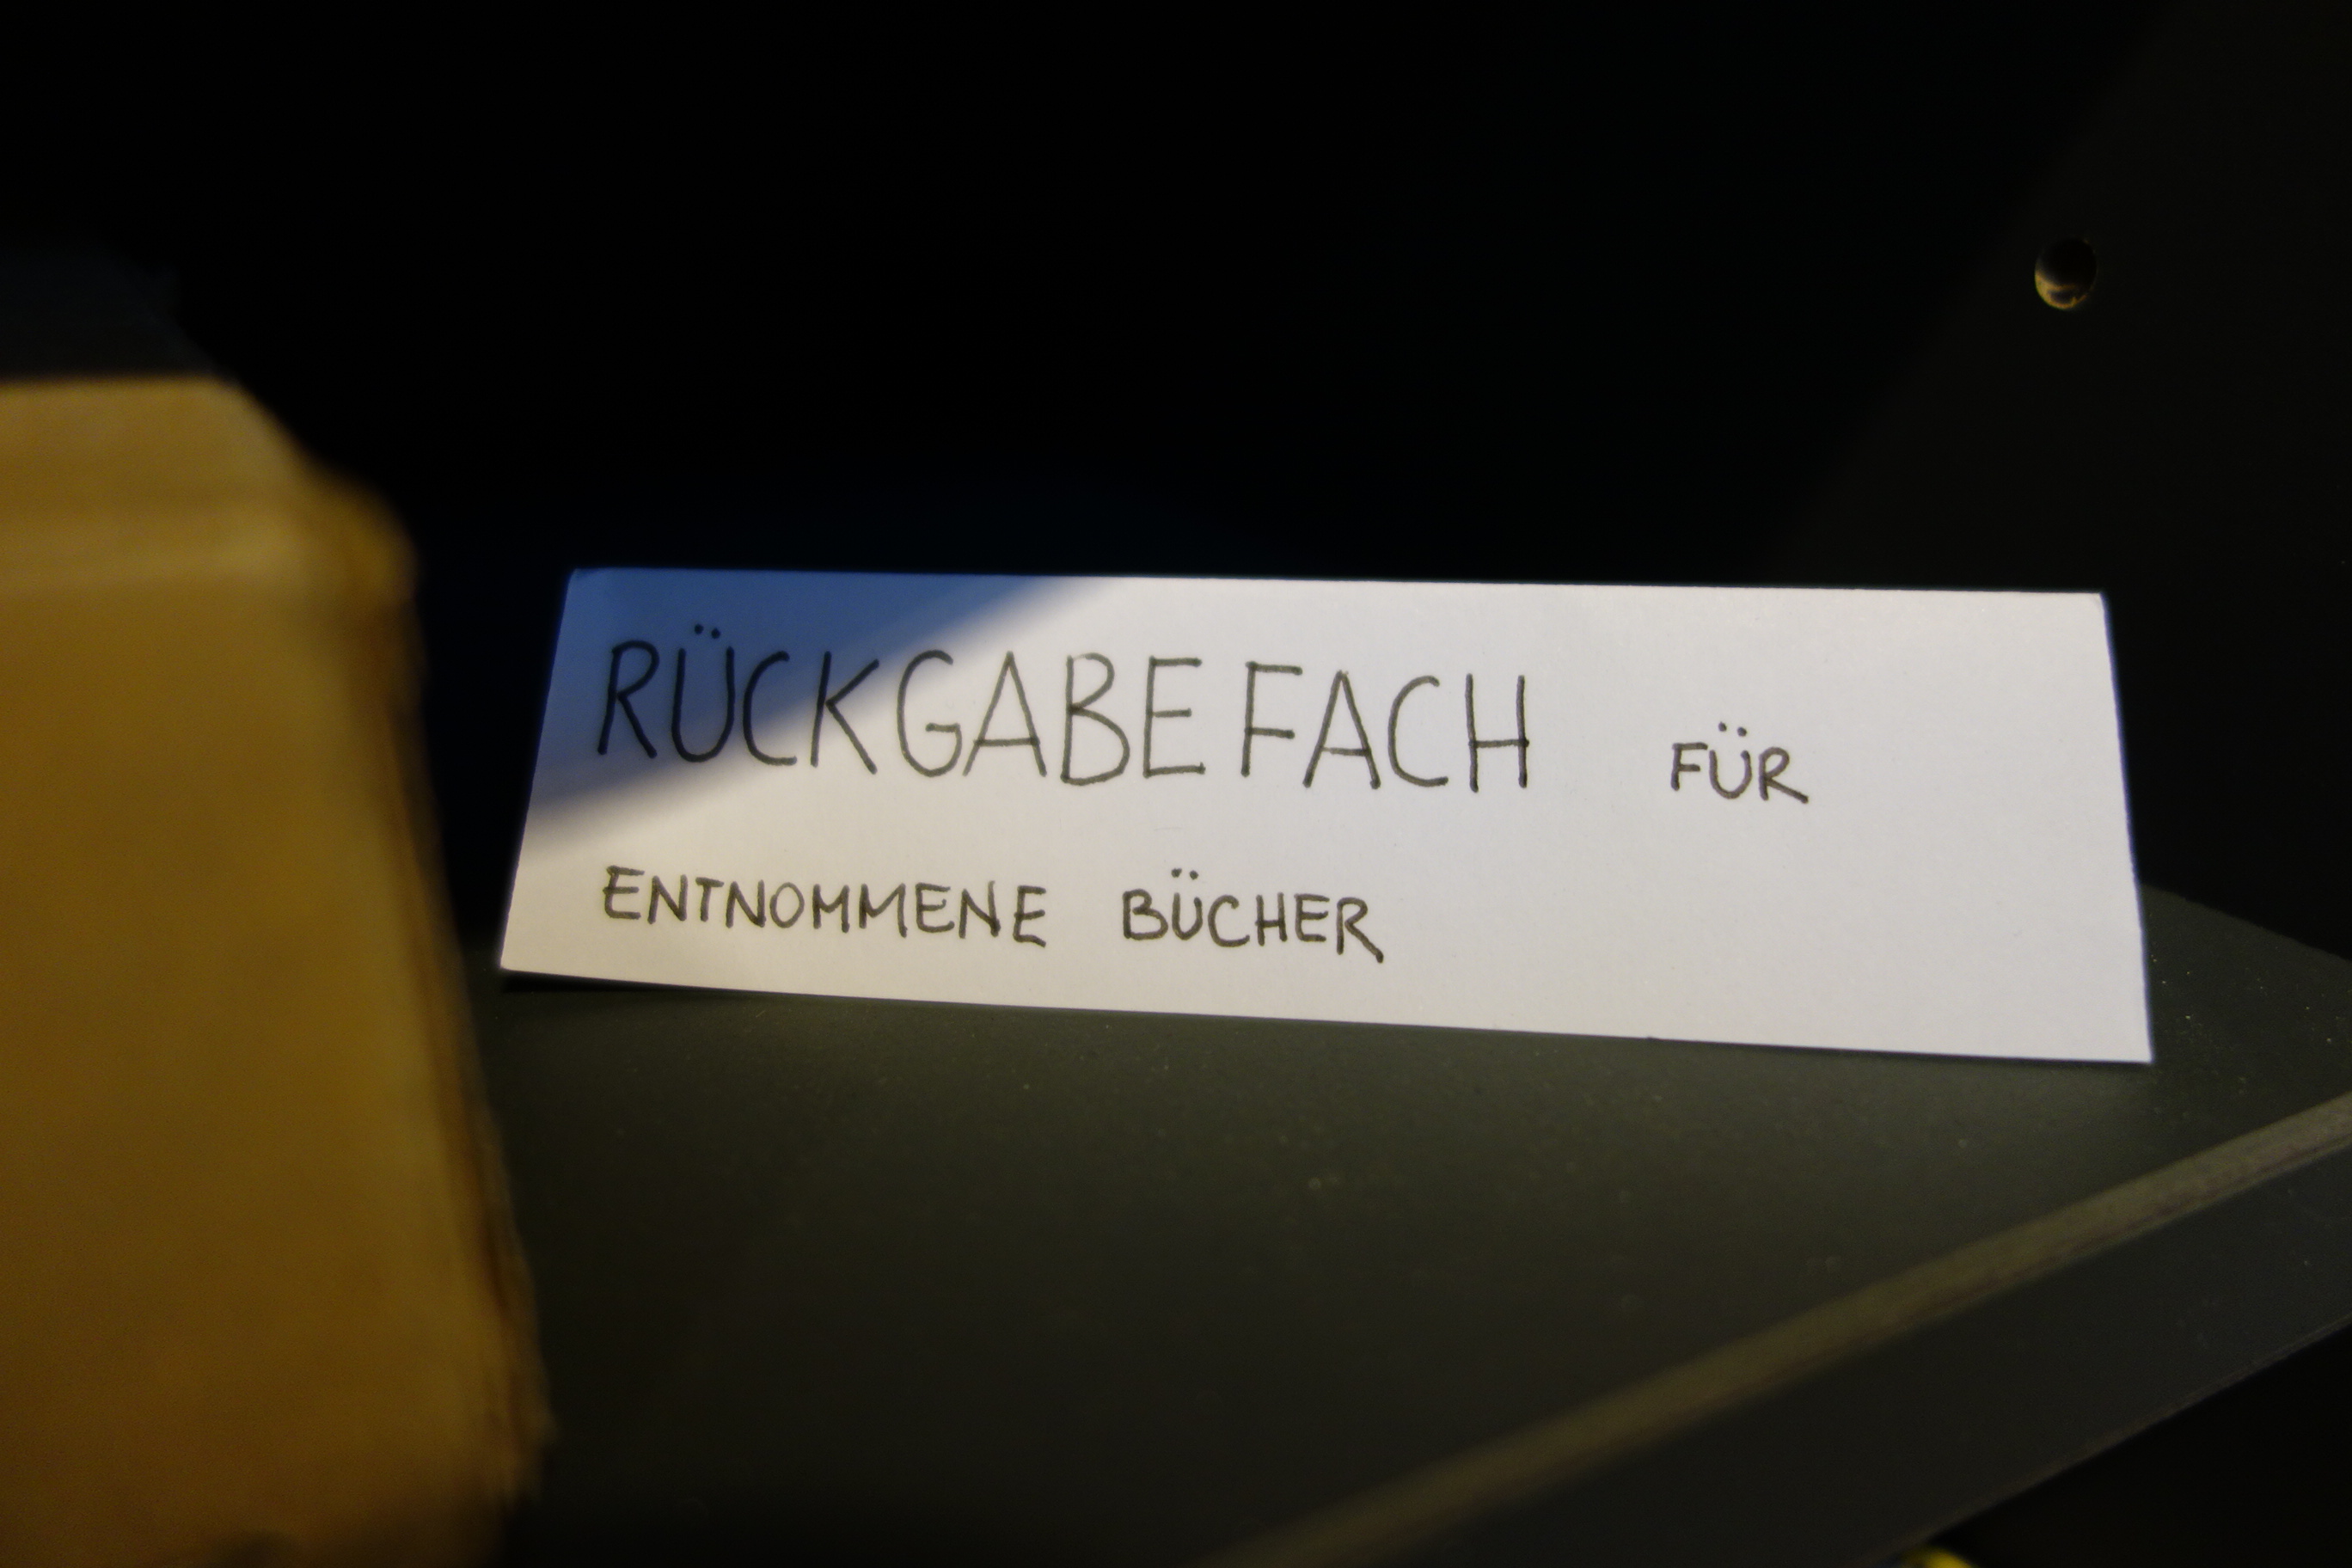 RÜCKGABEFACH FÜR
ENTNOMMENE BÜCHER